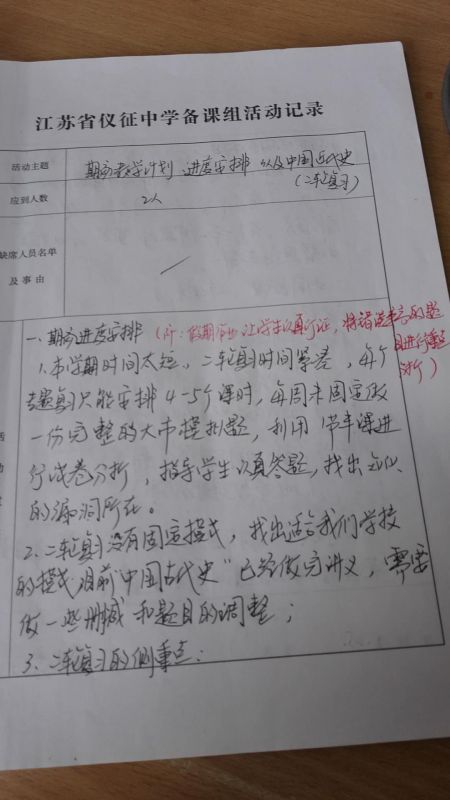 江苏省仪征中学备课组活动记录
活动主题
期初教学计划 进度安排 以及中国近代史
(二轮复习)
应到人数
2人
缺席人员名单
及事由
一、期初进度安排 (附:假期作业让学生认真订正,将错误率高的题
目进行重点
分析)
1.本学期时间太短,二轮复习时间紧差,每个
专题复习只能安排4-5个课时,每周末固定做
一份完整的大市模拟题,利用1节半课进
行试卷分析,指导学生认真答题,找出
的漏洞所在。
2.二轮复习没有固定模式,找出适合我们学校
的模式,目前“中国古代史”已经做完讲义,需要
做一些删减和题目的调整;
3.二轮复习的侧重点:
活
动